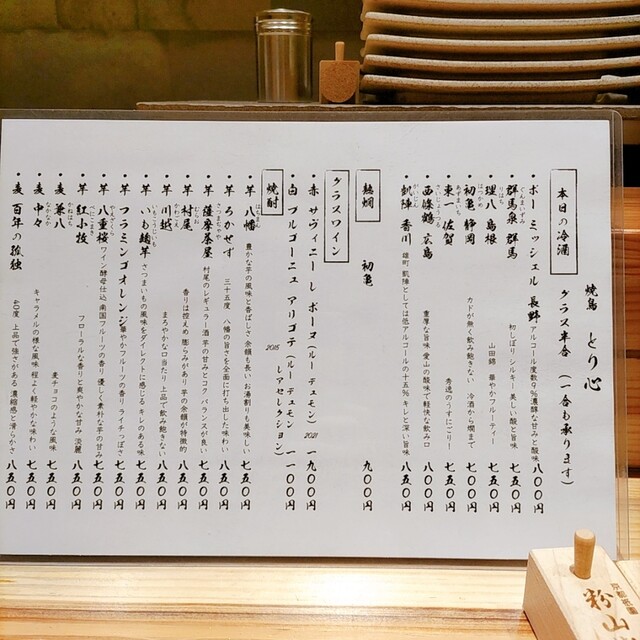 焼鳥 とり心
本日の冷酒 グラス半合 (一合も承ります)
・ボー ミッシェル 長野 アルコール度数9%濃醇な甘みと酸味 八〇〇円
群馬泉 群馬 初しぼりシルキー 美しい酸と旨味 七五〇円
理八 島根 山田錦 華やかフルーティー 七五〇円
初亀 静岡 カドが無く飲み飽きない 冷酒から燗まで 七五〇円
東一 佐賀 秀逸のうすにごり! 七五〇円
西條鶴 広島 重厚な旨味 愛山の酸味で軽快な飲み口 八〇〇円
凱陣 香川 雄町 凱陣としては低アルコールの十五% キレと深い旨味 八五〇円
熱燗 初亀 九〇〇円
グラスワイン
・赤 サヴィニー レ ボーヌ (ルー デュモン) 2021 一九〇〇円
・白 ブルゴーニュ アリゴテ (ルー デュモン レアセレクション) 2015 一一〇〇円
焼酎
・芋 八幡 豊かな芋の風味と香ばしさ 余韻も長い お湯割りも美味しい 七五〇円
・芋 ろかせず 三十五度 八幡の旨さを全面に打ち出した味わい 八五〇円
・芋 薩摩茶屋 村尾のレギュラー酒 芋の甘みとコク バランスが良い 七五〇円
・芋 村尾 香りは控えめ 膨らみがあり 芋の余韻が特徴的 八五〇円
・芋 川越 まろやかな口当たり 上品で飲み飽きない 八五〇円
・芋 いも麹芋 さつまいもの風味をダイレクトに感じる キレのある味 七五〇円
・芋 フラミンゴオレンジ 華やかフルーツの香り ライチっぽさ 七五〇円
・芋 八重桜 ワイン酵母仕込 南国フルーツの香り 優しく素朴な芋の甘み 七五〇円
・芋 紅小牧 フローラルな香りと爽やかな甘み 淡麗 八五〇円
・麦 兼八 麦チョコのような風味 七五〇円
・麦 中々 キャラメルの様な風味 程よく軽やかな味わい 七五〇円
・麦 百年の孤独 40度 上品で強さがある 濃縮感と滑らかさ 八五〇円
粉山